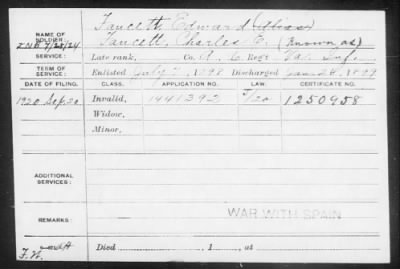 Faucett Edward (Alias)
NAME OF SOLDIER: Faucett, Charles E. (Known as)
SERVICE: Late rank, Co. A, 6 Reg't Va. Inf.
TERM OF SERVICE: Enlisted July 7, 1898 Discharged Jan. 26, 1899
DATE OF FILING. CLASS. APPLICATION NO. LAW. CERTIFICATE NO.
1920 Sep. 20 Invalid, 1441392 1250958
Widow,
Minor,
ADDITIONAL SERVICES:
REMARKS:
WAR WITH SPAIN
Died , 1 , at